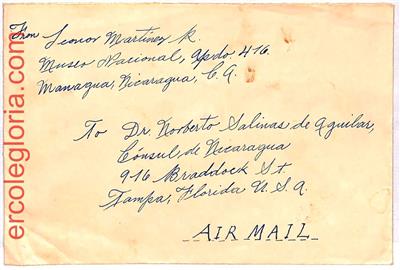 From Leonor Martínez R.
Museo Nacional, Apdo. 416.
Managua, Nicaragua, C.A.
To Dr. Norberto Salinas de Aguilar,
Cónsul de Nicaragua
916 Braddock St.
Tampa, Florida U.S.A.
AIR MAIL
ercolegloria.com